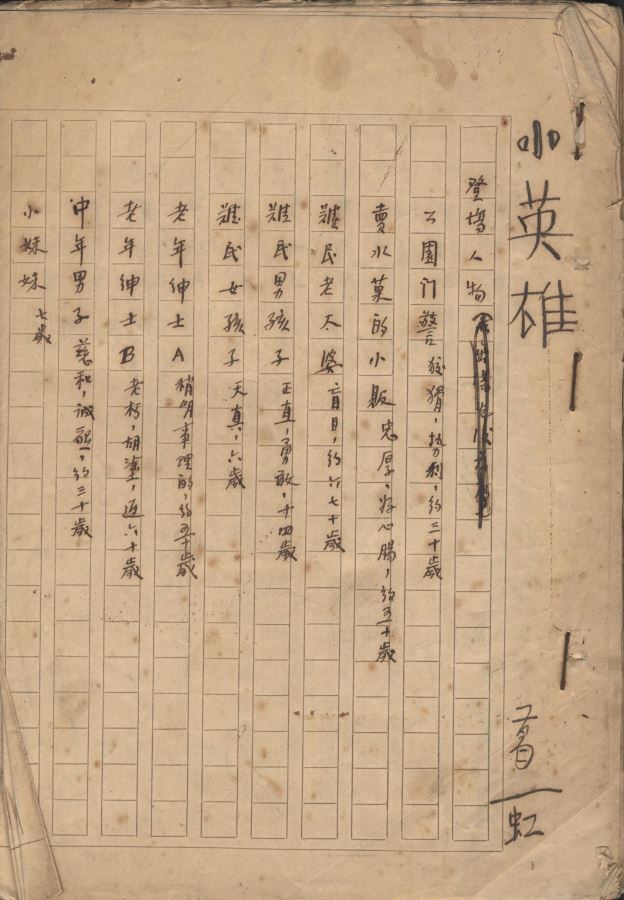 小英雄
葛一虹
登場人物
公園门警 狡猾，势利，约三十歲
賣水菓的小販 忠厚，好心腸，约五十歲
難民老太婆 盲目，约六七十歲
難民男孩子 正直，勇敢，十四歲
難民女孩子 天真，六歲
老年紳士A 稍明事理的，约五十歲
老年紳士B 老朽，胡塗，近六十歲
中年男子 慈和，誠懇，约三十歲
小妹妹 七歲